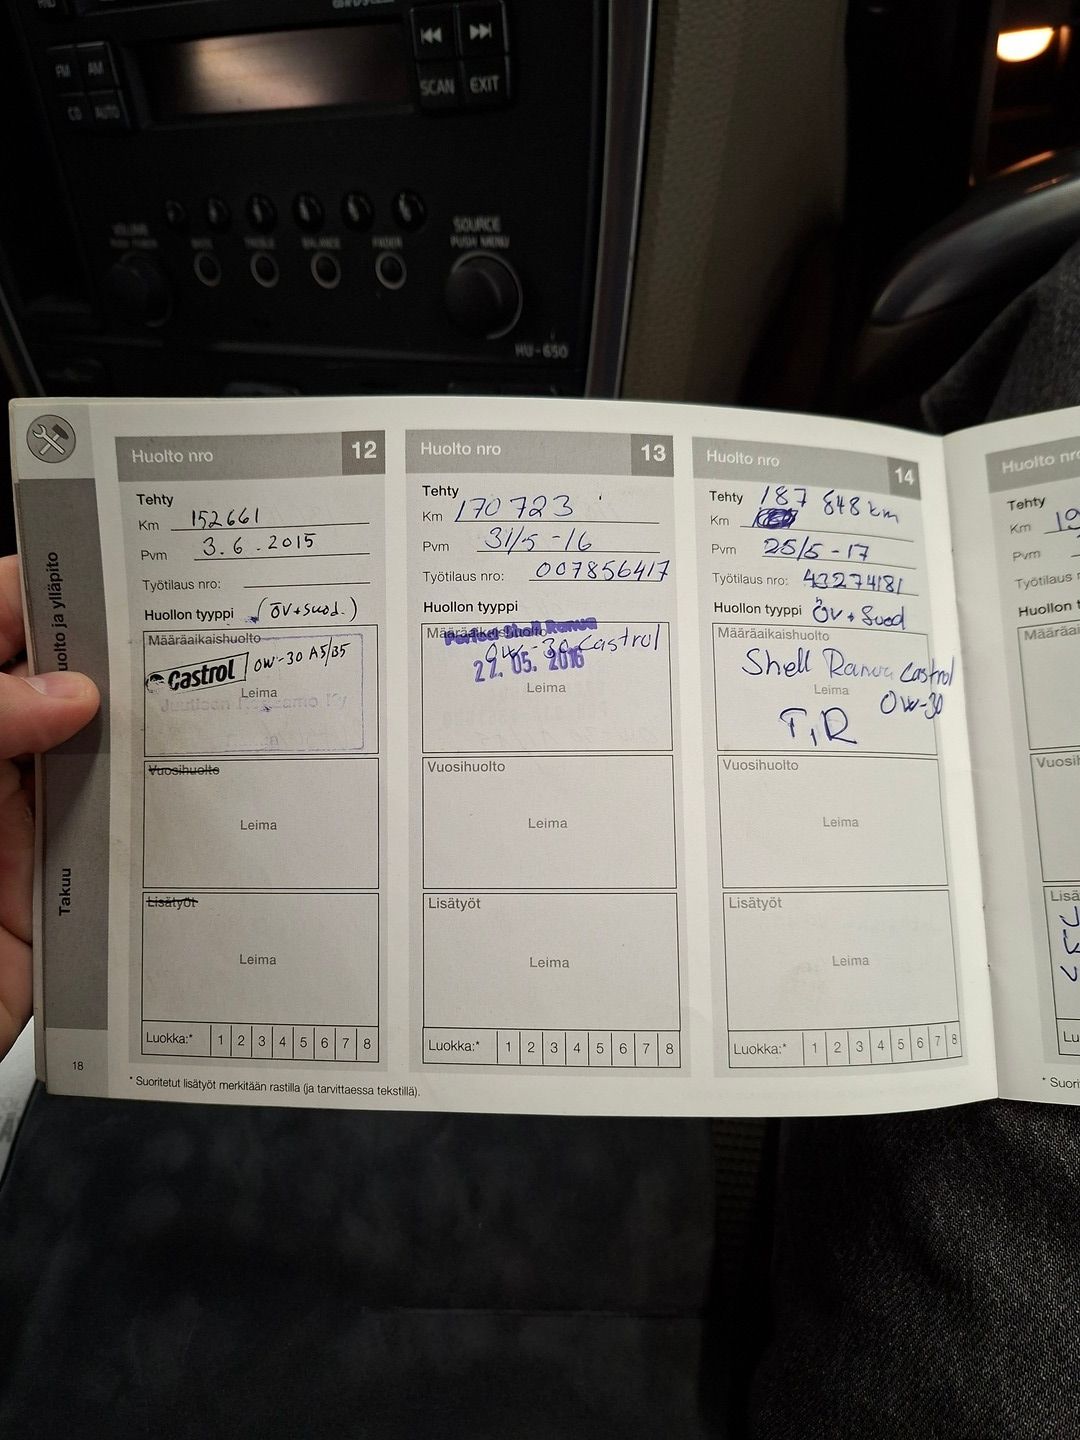 FM AM
CD AUTO
SCAN EXIT
VOLUME
SOURCE
PUSH MENU
BASS TREBLE BALANCE FADER
HU-650
Huolto nro 12
Tehty
Km 152661
Pvm 3.6.2015
Työtilaus nro:
Huollon tyyppi (ÖV+suod.)
Määräaikaishuolto
Castrol 0W-30 A5/B5
Leima
Vuosihuolto
Leima
Lisätyöt
Leima
Luokka:* 1 2 3 4 5 6 7 8
Huolto nro 13
Tehty
Km 170723
Pvm 31/5-16
Työtilaus nro: 007856417
Huollon tyyppi
Määräaikaishuolto
Shell Ranua
0W-30 Castrol
27. 05. 2016
Leima
Vuosihuolto
Leima
Lisätyöt
Leima
Luokka:* 1 2 3 4 5 6 7 8
Huolto nro 14
Tehty 187 848 km
Km
Pvm 25/5-17
Työtilaus nro: 43274181
Huollon tyyppi ÖV + Suod
Määräaikaishuolto
Shell Ranua Castrol
Leima 0W-30
T,R
Vuosihuolto
Leima
Lisätyöt
Leima
Luokka:* 1 2 3 4 5 6 7 8
Huolto nro
Tehty
Km 19
Pvm
Työtilaus
Huollon t
Määräai
Vuosih
Lisä
Lu
uolto ja ylläpito
Takuu
18
* Suoritetut lisätyöt merkitään rastilla (ja tarvittaessa tekstillä).
* Suori